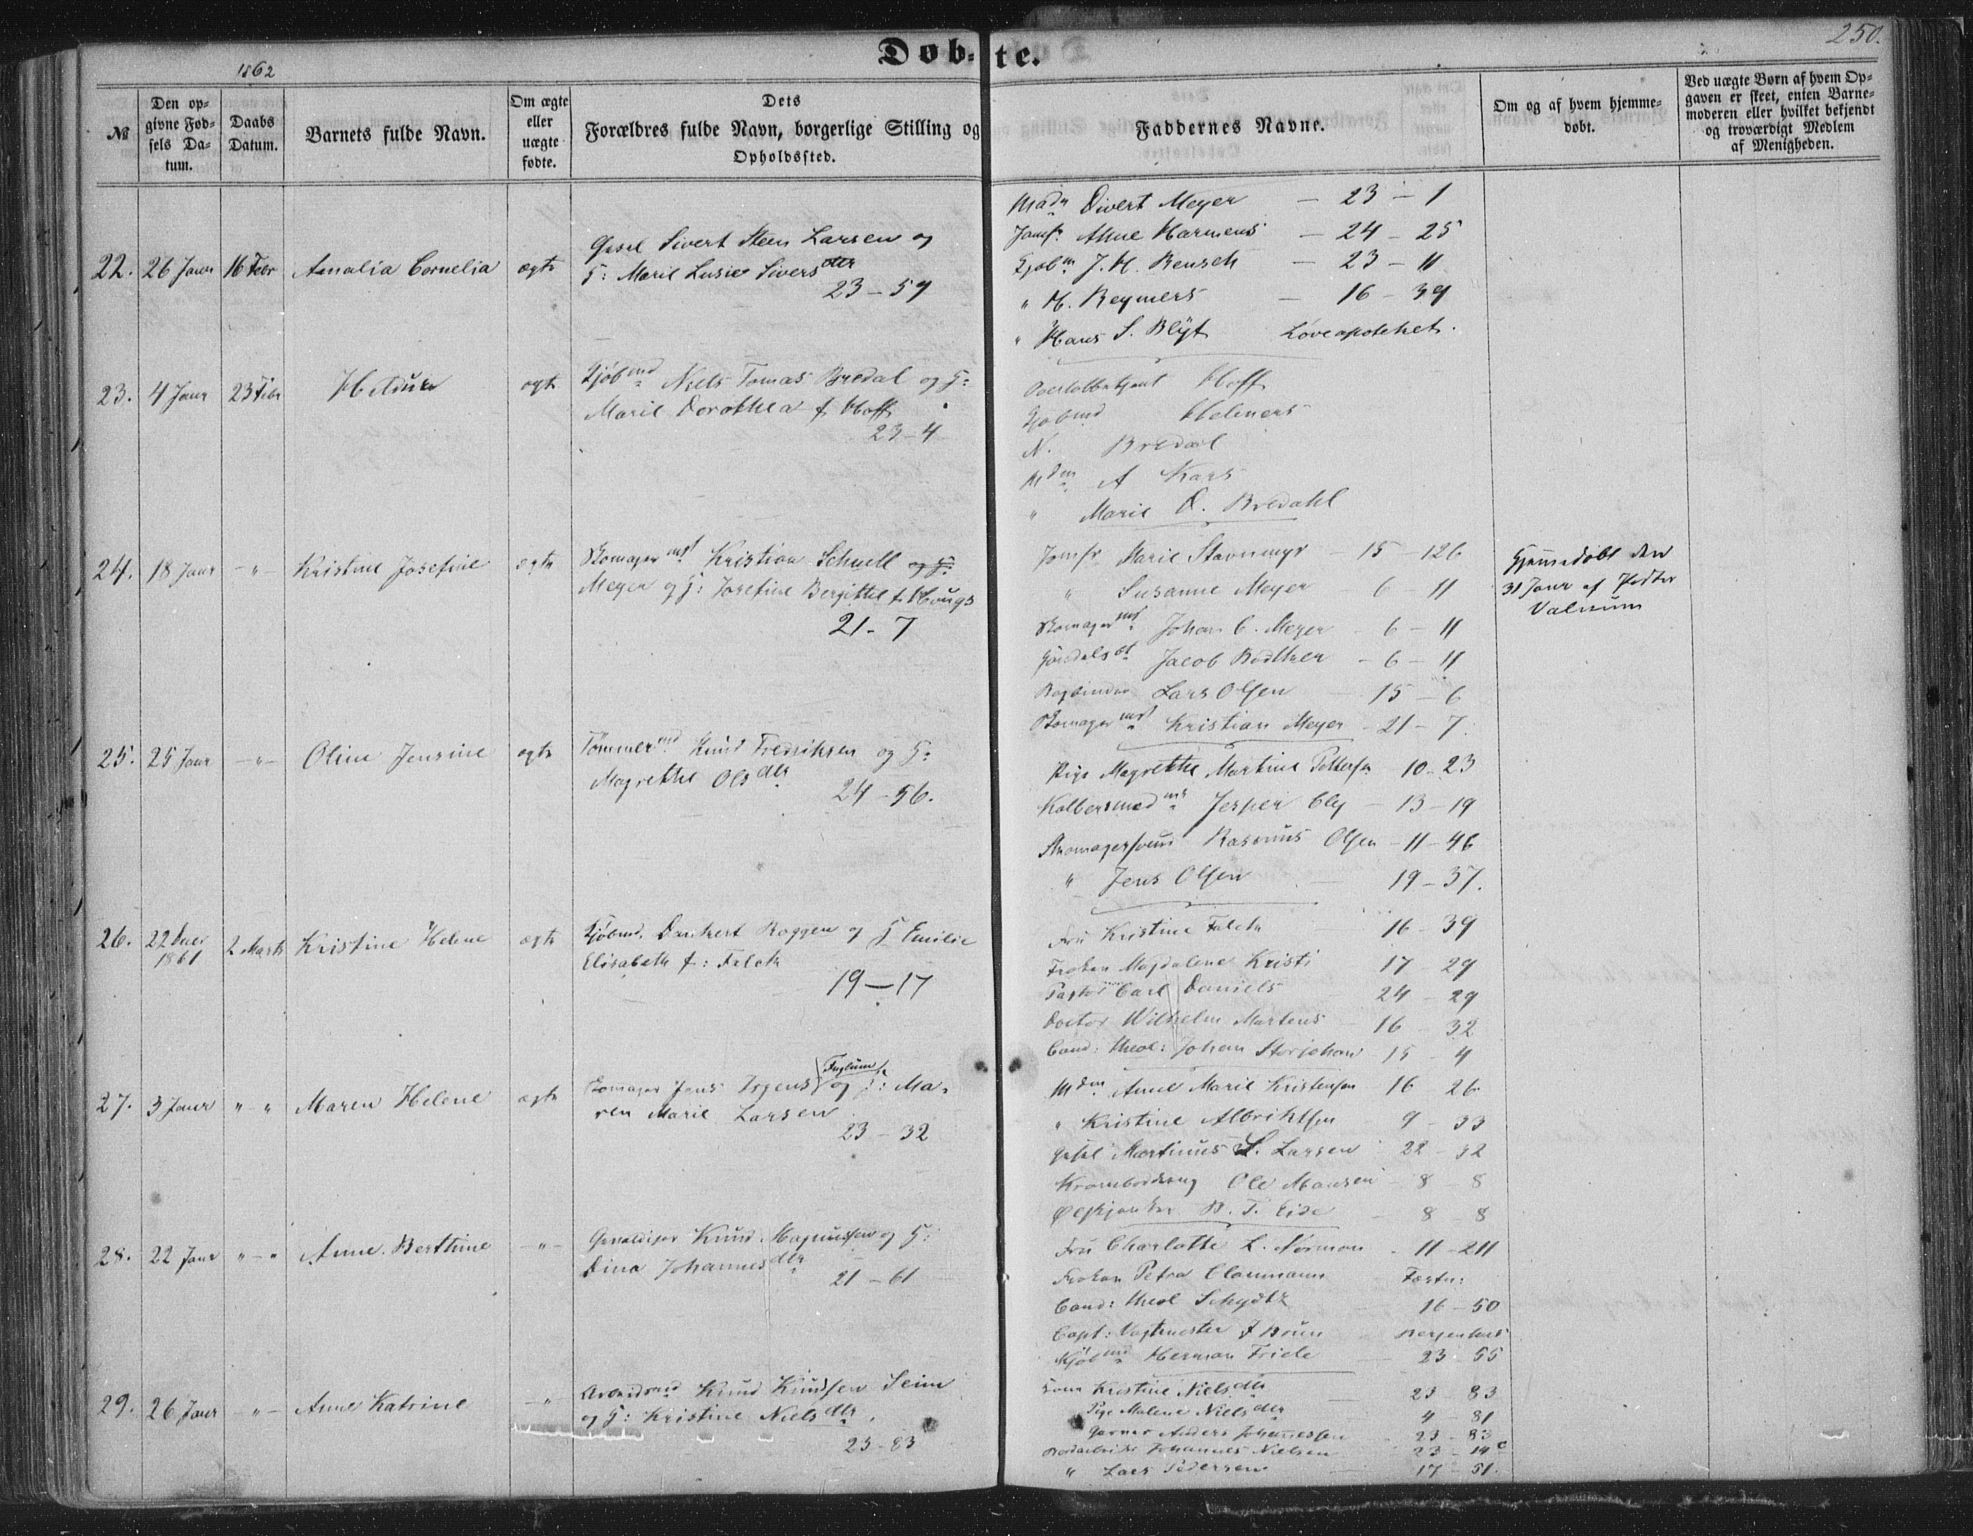 Døb-te.
250.
1862
№
Den op-
givne Fød-
sels Da-
tum.
Daabs
Datum.
Barnets fulde Navn.
Om ægte
eller
uægte
fødte.
Dets
Forældres fulde Navn, borgerlige Stilling og
Opholdssted.
Faddernes Navne.
Om og af hvem hjemme-
døbt.
Ved uægte Børn af hvem Op-
gaven er skeet, enten Barne-
moderen eller hvilket bekjendt
og troværdigt Medlem
af Menigheden.
22. 26 Janr 16 Febr Amalia Cornelia ægte
Gesel Sivert Steen Larsen og
G: Marie Lusie Siversdtr
23 – 59
Madm Divert Meyer – 23 – 1
Jomfr. Anne Harmens – 24 – 25
Kjøbm J. H. Rensch – 23 – 11
" H. Reymers – 16 – 39
" Hans S. Blyt Løveapotheket.
23. 4 Janr 23 Febr ægte
Kjøbmd Niels Tomas Bredal og G:
Marie Dorothea f. Hoff
23 – 4
Hoff
Kjøbmd Helmers
N. Bredal
Mdm A
" Marie D. Bredahl
24. 18 Janr – " – Kristine Josefine ægte
Skomagermst Kristian Schnell og G:
Meyer og G: Josefine Bergitte f. Houge
21 – 7
Jomfr Marie – 15 – 126
" Susanne Meyer – 6 – 11
Skomagermst Johan C. Meyer – 6 – 11
Jacob Bødtker – 6 – 11
Bogbinder Lars Olsen 15 – 6
Skomagermst Kristian Meyer – 21 – 7.
Hjemmedøbt den
31 Janr af
25. 25 Janr – " – Oline Jensine ægte
Tømmermd Knud Fredriksen og G:
Magrethe Olsdtr
24 – 56.
Pige Magrethe Martine Pettersen 10 – 23
Kobbersmedms Jesper Cly – 13 – 19
Skomagersvend Rasmus Olsen – 11 – 46
" Jens Olsen 19 – 37.
26. 22 Decr
1861
2 Marts Kristine Helene ægte
Kjøbmd. Dankert Roggen og G Emilie
Elisabeth f: Falck
19 – 17
Fru Kristine Falck 16 – 39
Frøken Magdalene Kristi 17 – 29
Pastor Carl Daniels 24 – 29
Doctor Wilhelm Martens – 16 – 32
Cand: theol: Johan Storjohan 15 – 4
27. 3 Janr " – " Maren Helene ægte
Skomager Jens og G: Ma-
ren Marie Larsen
23 – 32
Mdm Anne Marie Kristensen 16 26
" Kristine Albriktsen 9 – 33
Gesel Martinus L. Larsen 22 – 32
Ole Monsen – 8 – 8
B. T. Eide – 8 – 8
28. 22 Janr " – " Anne Berthine – " –
Knud Magnussen og G:
Dina Johannesdtr
21 – 61
Fru Charlotte L. Norman – 11 – 211
Frøken Petra Clanmann
Cand: theol Schydtz 16 – 50
Capt: Vagtmester F Bruun Bergenhus
Kjøbmd Herman Friele 23 – 55
29. 26 Janr – " – Anne Katrine – "
Arbeidsmd Knud Knudsen Seim
og G: Kristine Nielsdtr.
23 – 83
Kone Kristine Nielsdtr 23 – 83
Pige Malene Nielsdtr 4 – 81
Garver Anders Johannessen 23 – 83
Johannes Nielsen 23 – 14c
" Lars Pedersen 17 – 51.